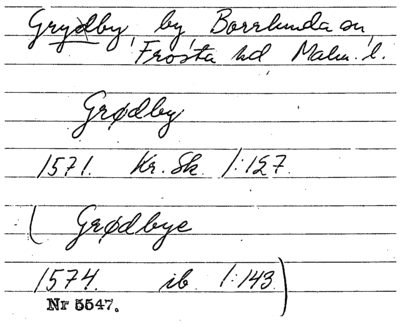 Grydby, by, Borrlunda sn,
Frosta hd Malm. l.
Grødby
1571. Kr. Sk. 1:127.
( Grødbye
1574. ib. 1:143)
Nr 5547.